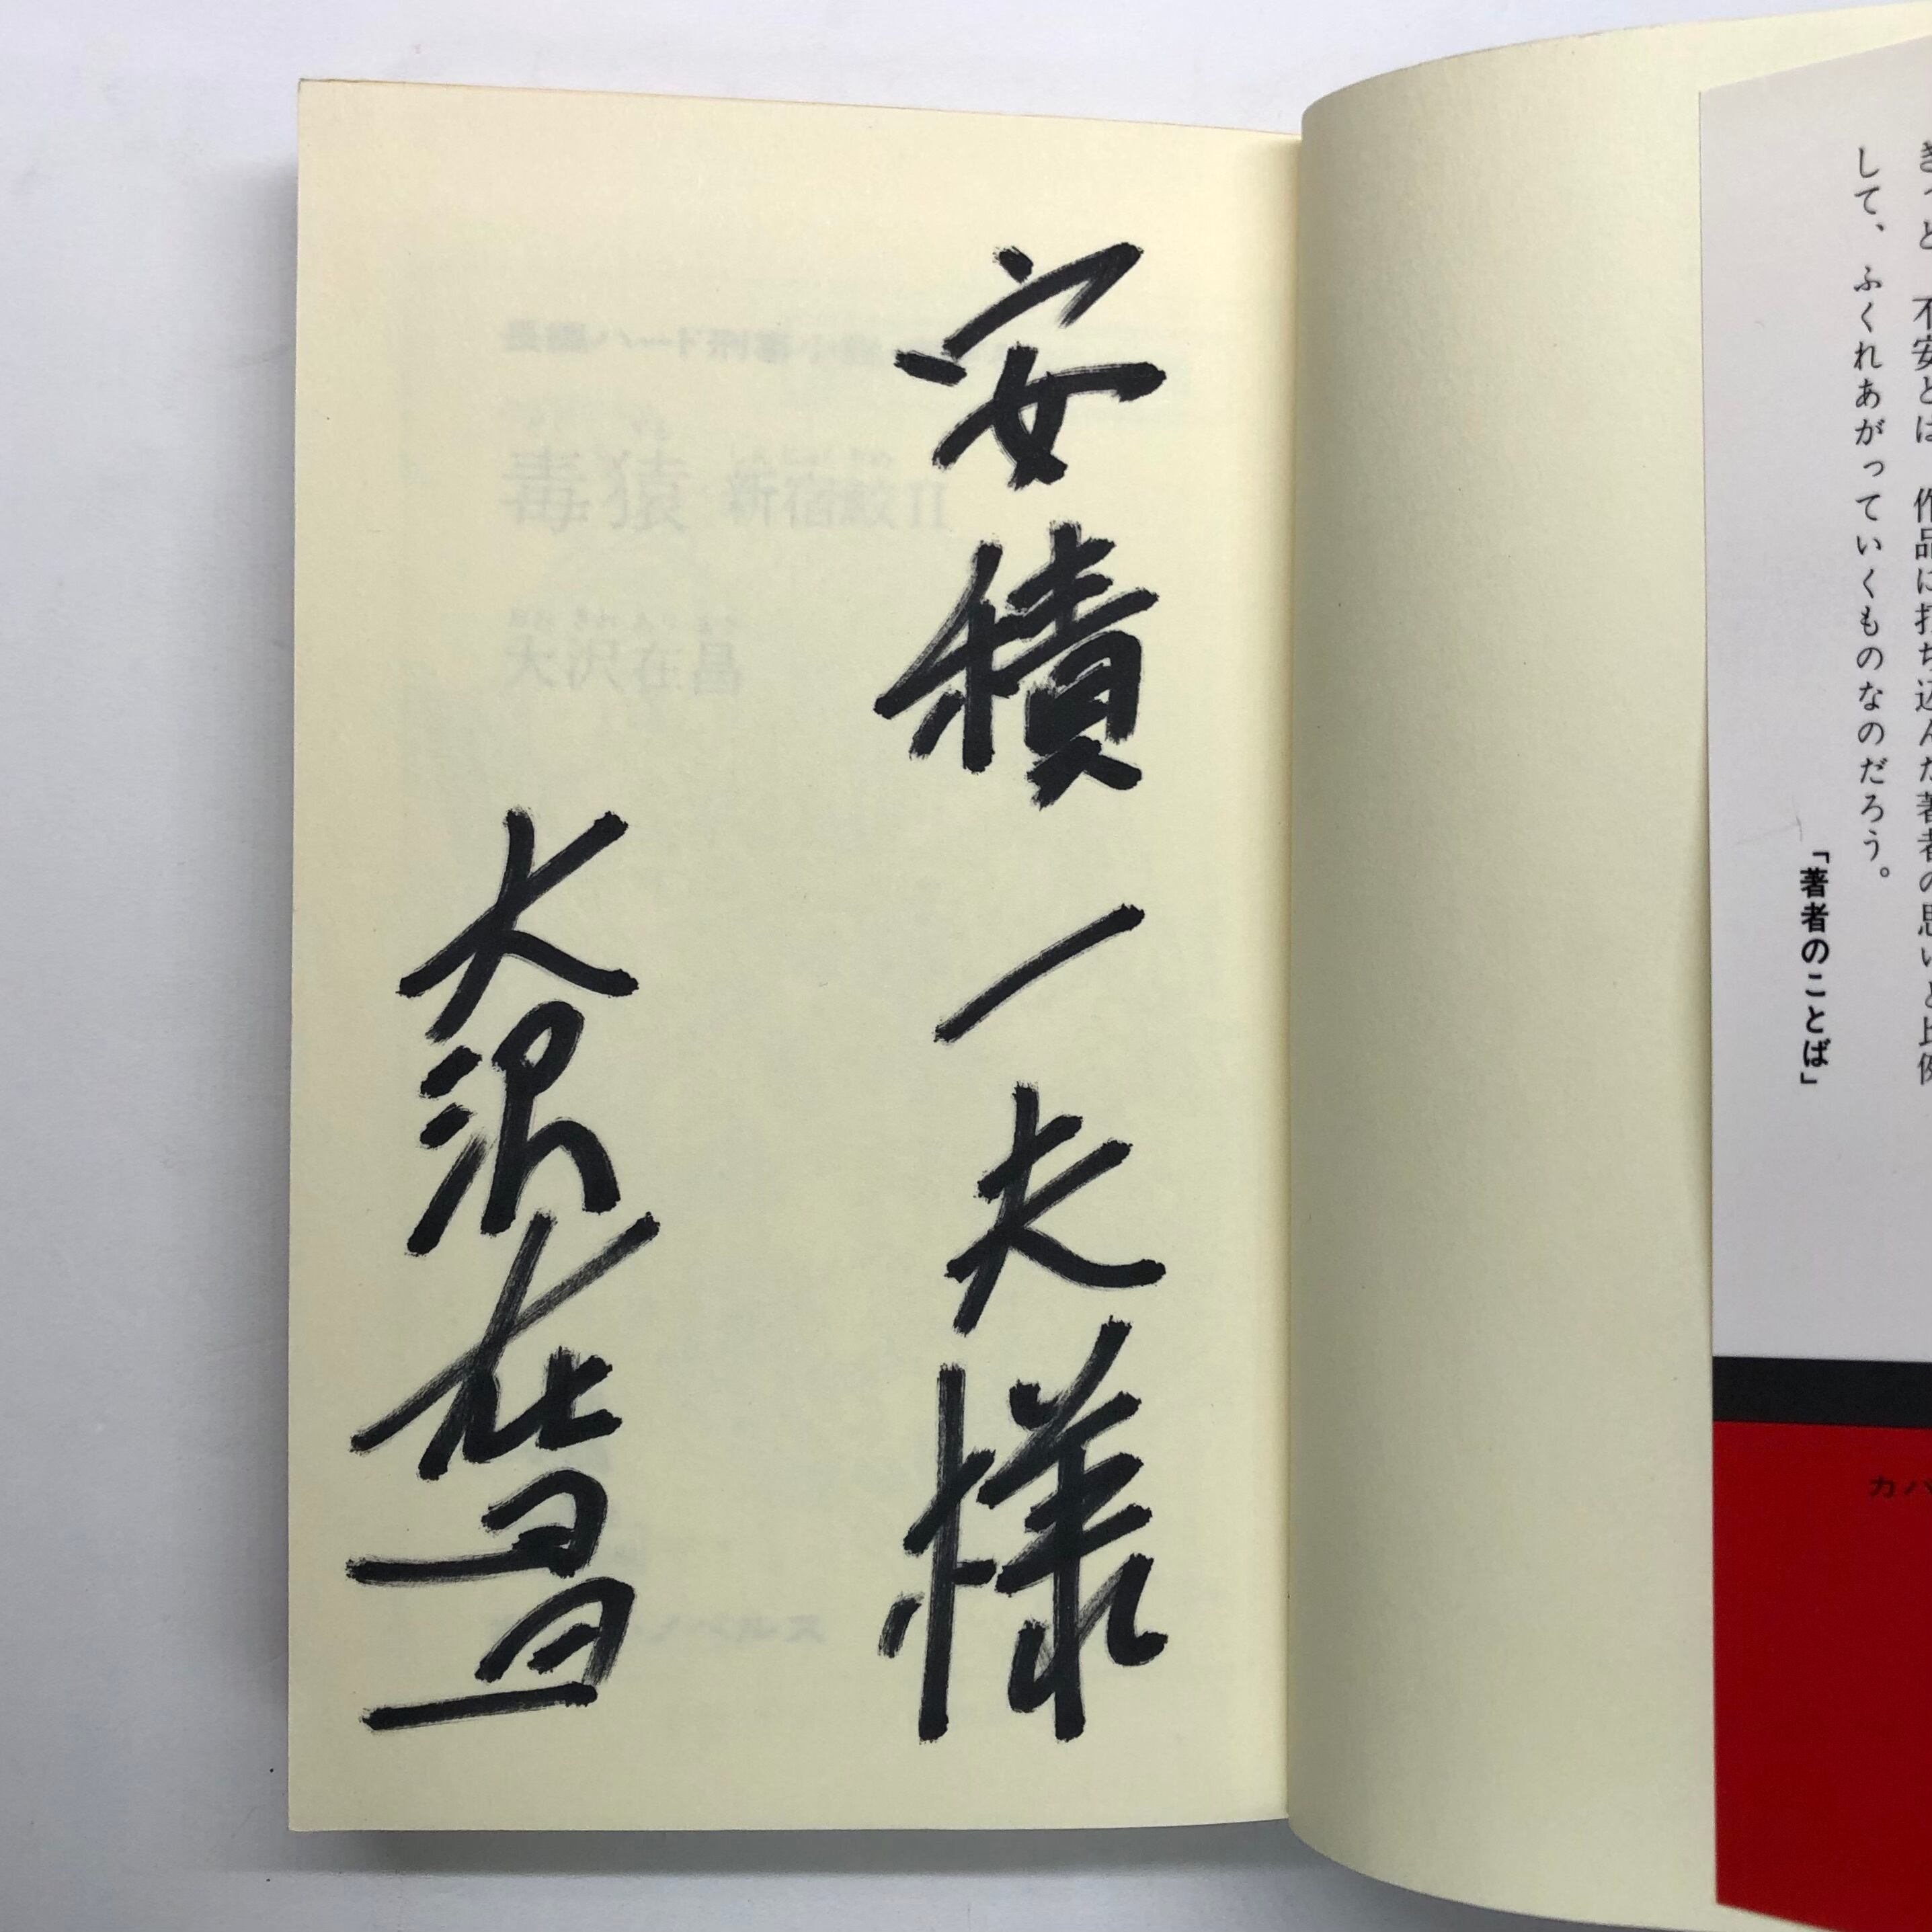 きっと 不安とは 作品に打ち込んだ著者の思いと比例
して、ふくれあがっていくものなのだろう。
「著者のことば」
カバ
安積一夫様
大沢在昌
毒猿 新宿鮫II
大沢在昌
ノベルス